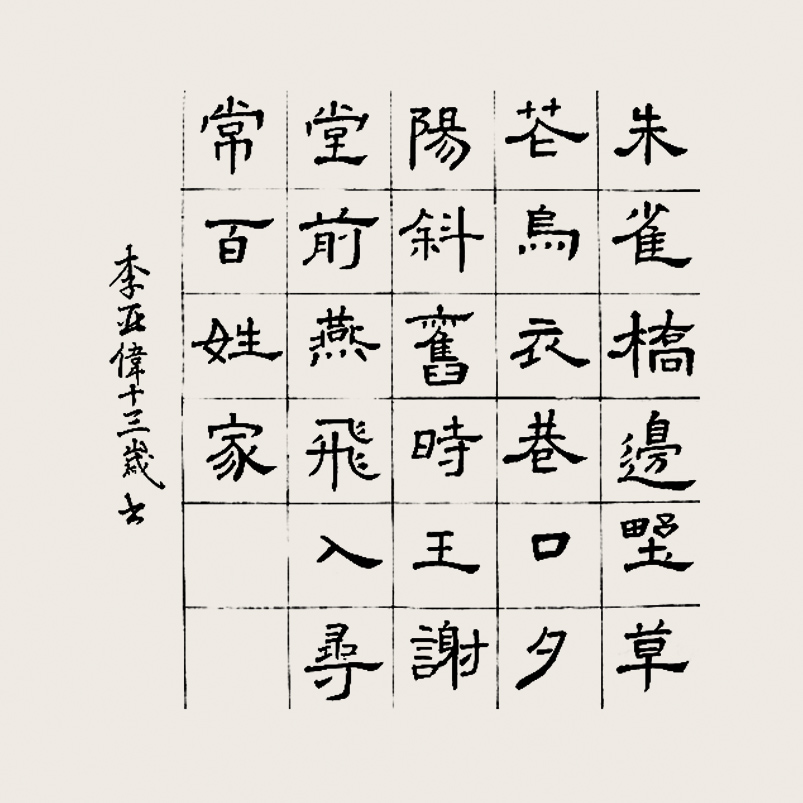 朱雀橋邊野草
芲烏衣巷口夕
陽斜舊時王謝
堂前燕飛入尋
常百姓家
李亚偉十三歲书